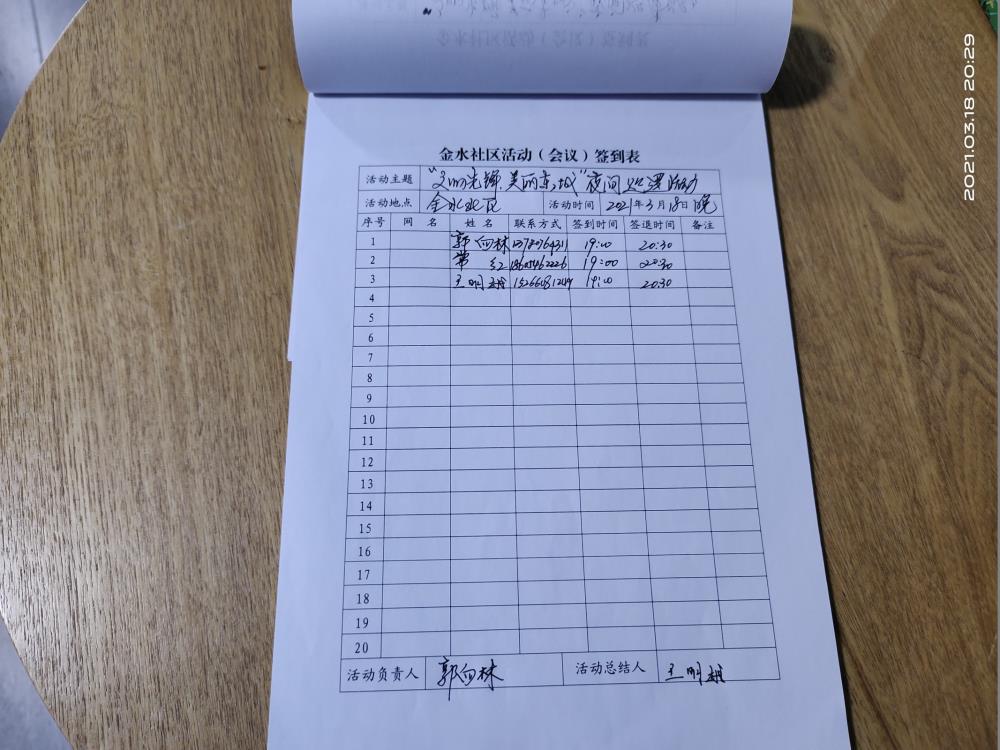 金水社区活动（会议）签到表
活动主题 "文明先锋,美丽东城"夜间巡逻活动
活动地点 金水社区 活动时间 2021年3月18日晚
序号 网名 姓名 联系方式 签到时间 签退时间 备注
1 郭向林 19:00 20:30
2 常红 19:00 20:30
3 王明 19:00 20:30
4
5
6
7
8
9
10
11
12
13
14
15
16
17
18
19
20
活动负责人 郭向林 活动总结人 王明
2021.03.18 20:29